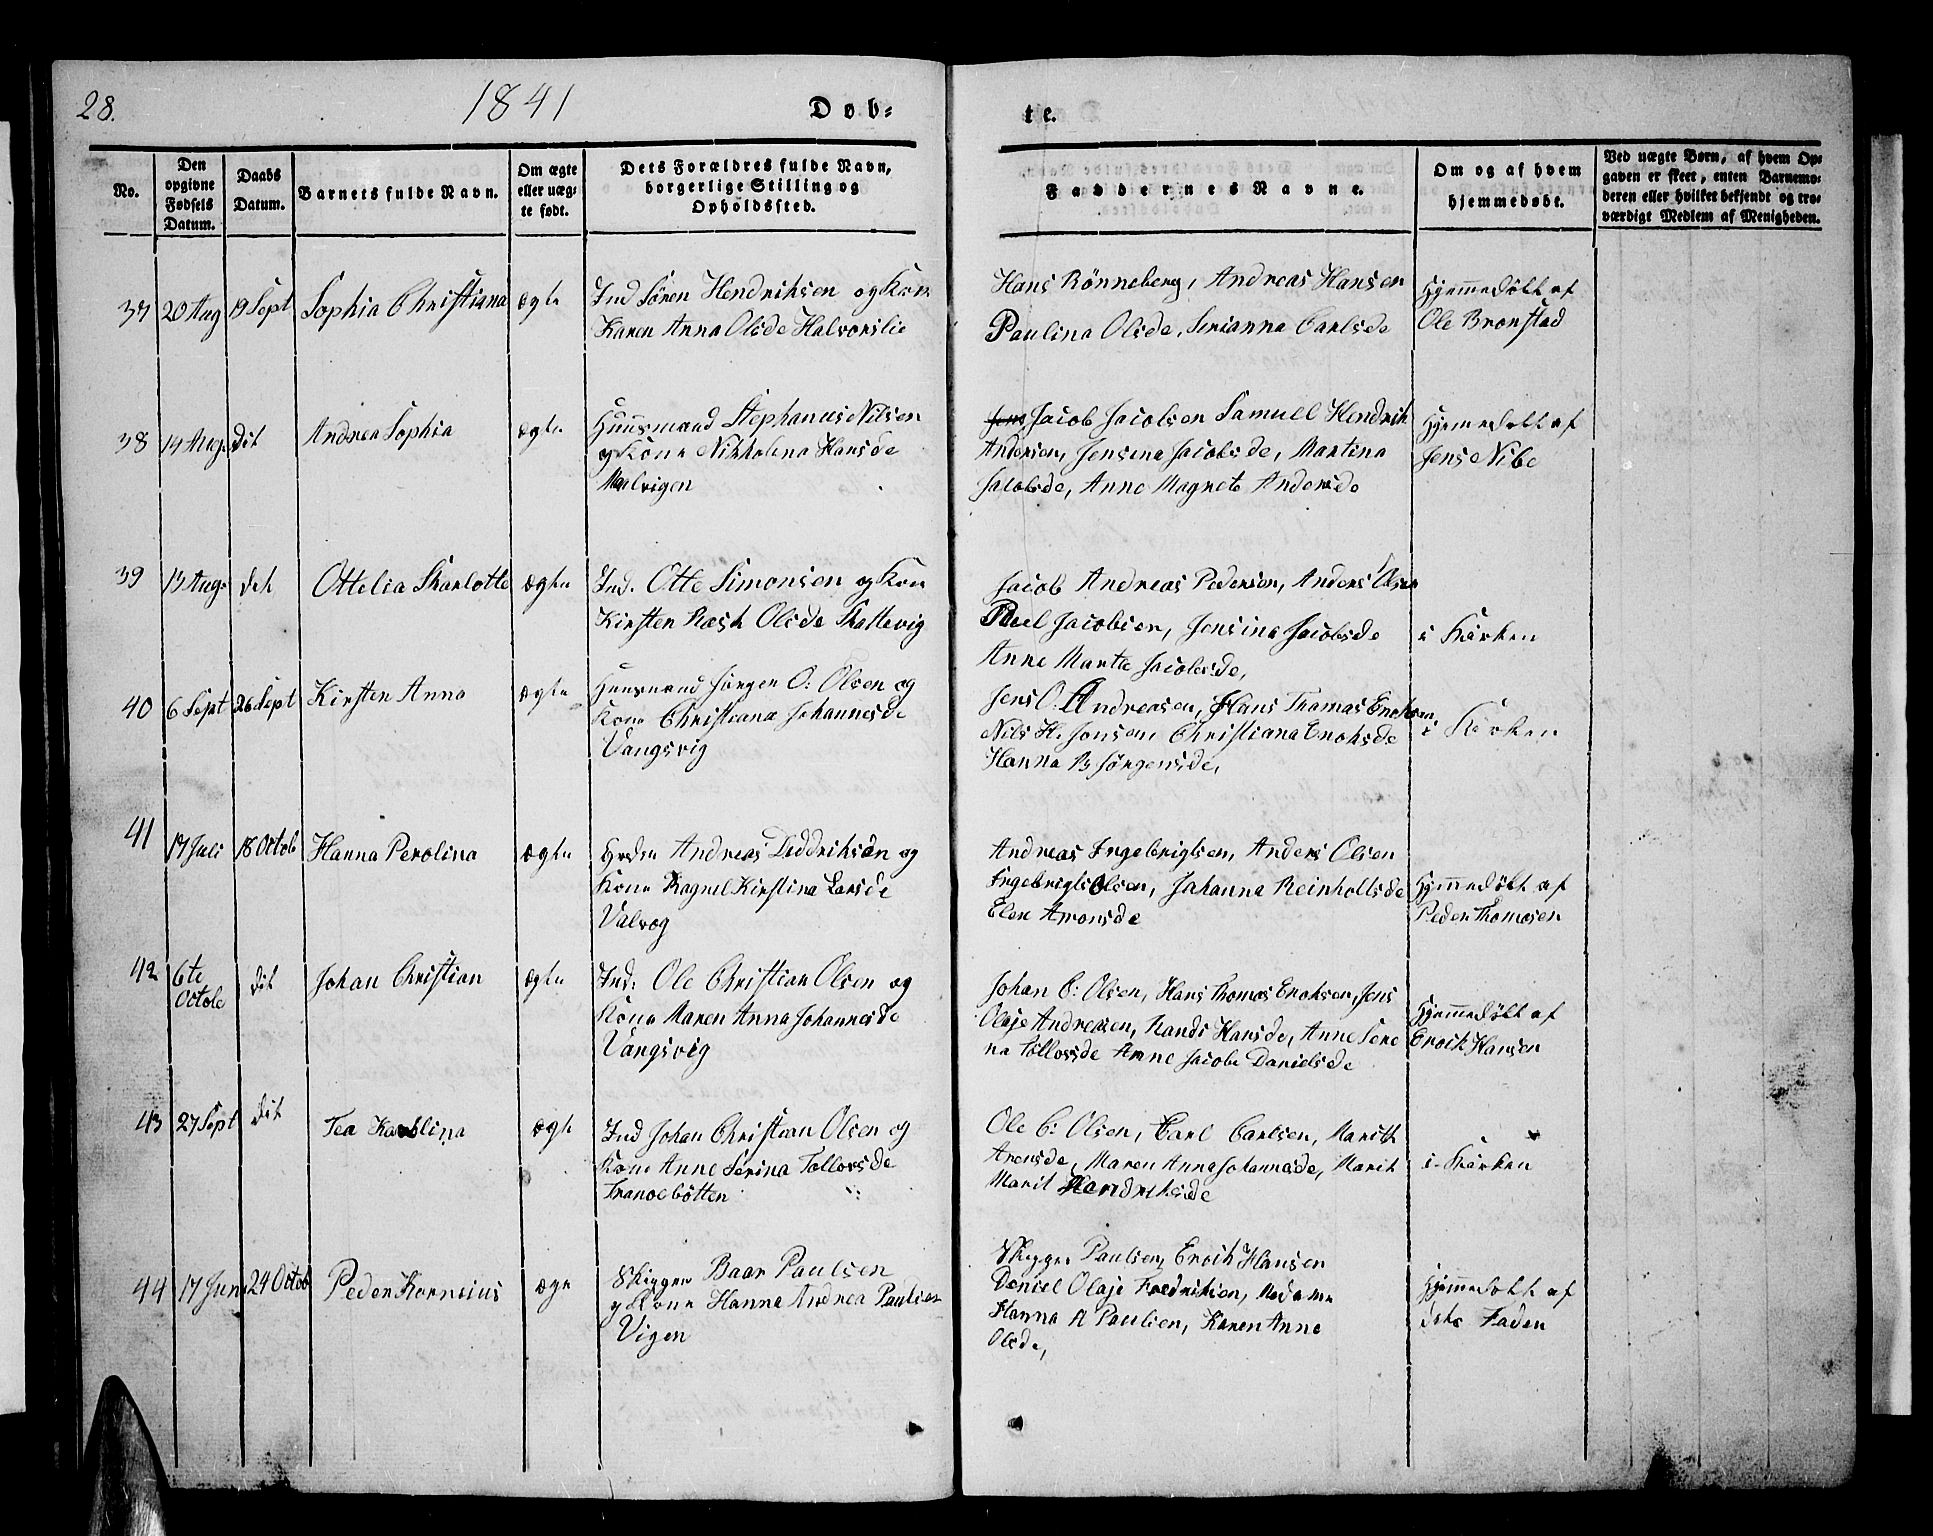 28.
1841
Døb-
te.
No.
Den opgivne Fødsels Datum.
Daabs Datum.
Barnets fulde Navn.
Om ægte eller uægte født.
Dets Forældres fulde Navn, borgerlige Stilling og Opholdssted.
Faddernes Navne.
Om og af hvem hjemmedøbt.
Ved uægte Børn, af hvem Opgaven er skeet, enten Barnemoderen eller hvilket bekjendt og troværdigt Medlem af Menigheden.
37 20 Aug 19 Sept Sophia Christiana ægte
Ind Sören Hendriksen og Kone
Karen Anna Olsde Halvorslie
Hans Rönneberg, Andreas Hansen
Paulina Olsde, Serianna Carlsde
Hjemmedöbt af
Ole Bronstad
38 14 Aug. dit Andrea Sophia ægte
Huusmand Stephanus Nilsen
og Kone Nikkolina Hansde
Malvigen
Jens Jacob Jacobsen Samuel Hendrik
Andersen, Jensina Jacobsde, Martina
Jacobsde, Anne Magnete Andersde
Hjemedobt af
Jens Nibe
39 13 Aug. det Ottelia Skarlotte ægte
Ind. Otte Simonsen og Kone
Kirsten Rask Olsde Skattevig
Jacob Andreas Pedersen, Anders Olsen
Poel Jacobsen, Jensina Jacobsde
Anne Marthe Jacobsde,
i Kirken
40 6 Sept 26 Sept Kirsten Anna ægte
Huusmand Jörgen O: Olsen og
Kone Christiana Johannesde
Vangsvig
Jens O: Andreasen, Hans Thomas Enoksen,
Nils H. Jonsen, Christiana Enoksde
Hanna B Jörgensde,
i Kirken
41 17 Juli 18 Octob Hanna Perolina ægte
Andreas Diddriksen og
Kone Ragnel Kirstina Larsde
Valvog
Andreas Ingebrigtsen, Anders Olsen
Ingebrigt Olsen, Johanna Reinholtsde
Elen Aronsde
Hjemmedöbt af
Peder Thomesen
42 6te Octobe dit Johan Christian ægte
Ind. Ole Christian Olsen og
Kone Maren Anna Johannesde
Vangsvig
Johan C: Olsen, Hans Thomas Enoksen, Jens
Olaje Andreasen, Randi Hansde, Anne Sere
na Tollevsde Anne Jacobe Danielsde
Hjemmedöbt af
Enoch Hansen
43 27 Sept dit Tea Karolina ægte
Ind Johan Christian Olsen og
Kone Anne Serina Tollovsde
Tranoebotten
Ole C: Olsen, Carl Carlsen, Marith
Aronsde, Maren Anna Johannesde, Marit
Marit Hendriksde
i Kirken
44 17 Juni 24 Octob Peder Kornelius ægte
Skipper Baar Paulsen
og Kone Hanna Andrea Paulsen
Vigen
Skipper Paulsen, Enoch Hansen
Daniel Olaje Fredriksen, Madame
Hanna A Paulsen, Karen Anne
Olsde,
Hjemmedobt af
dets Fader